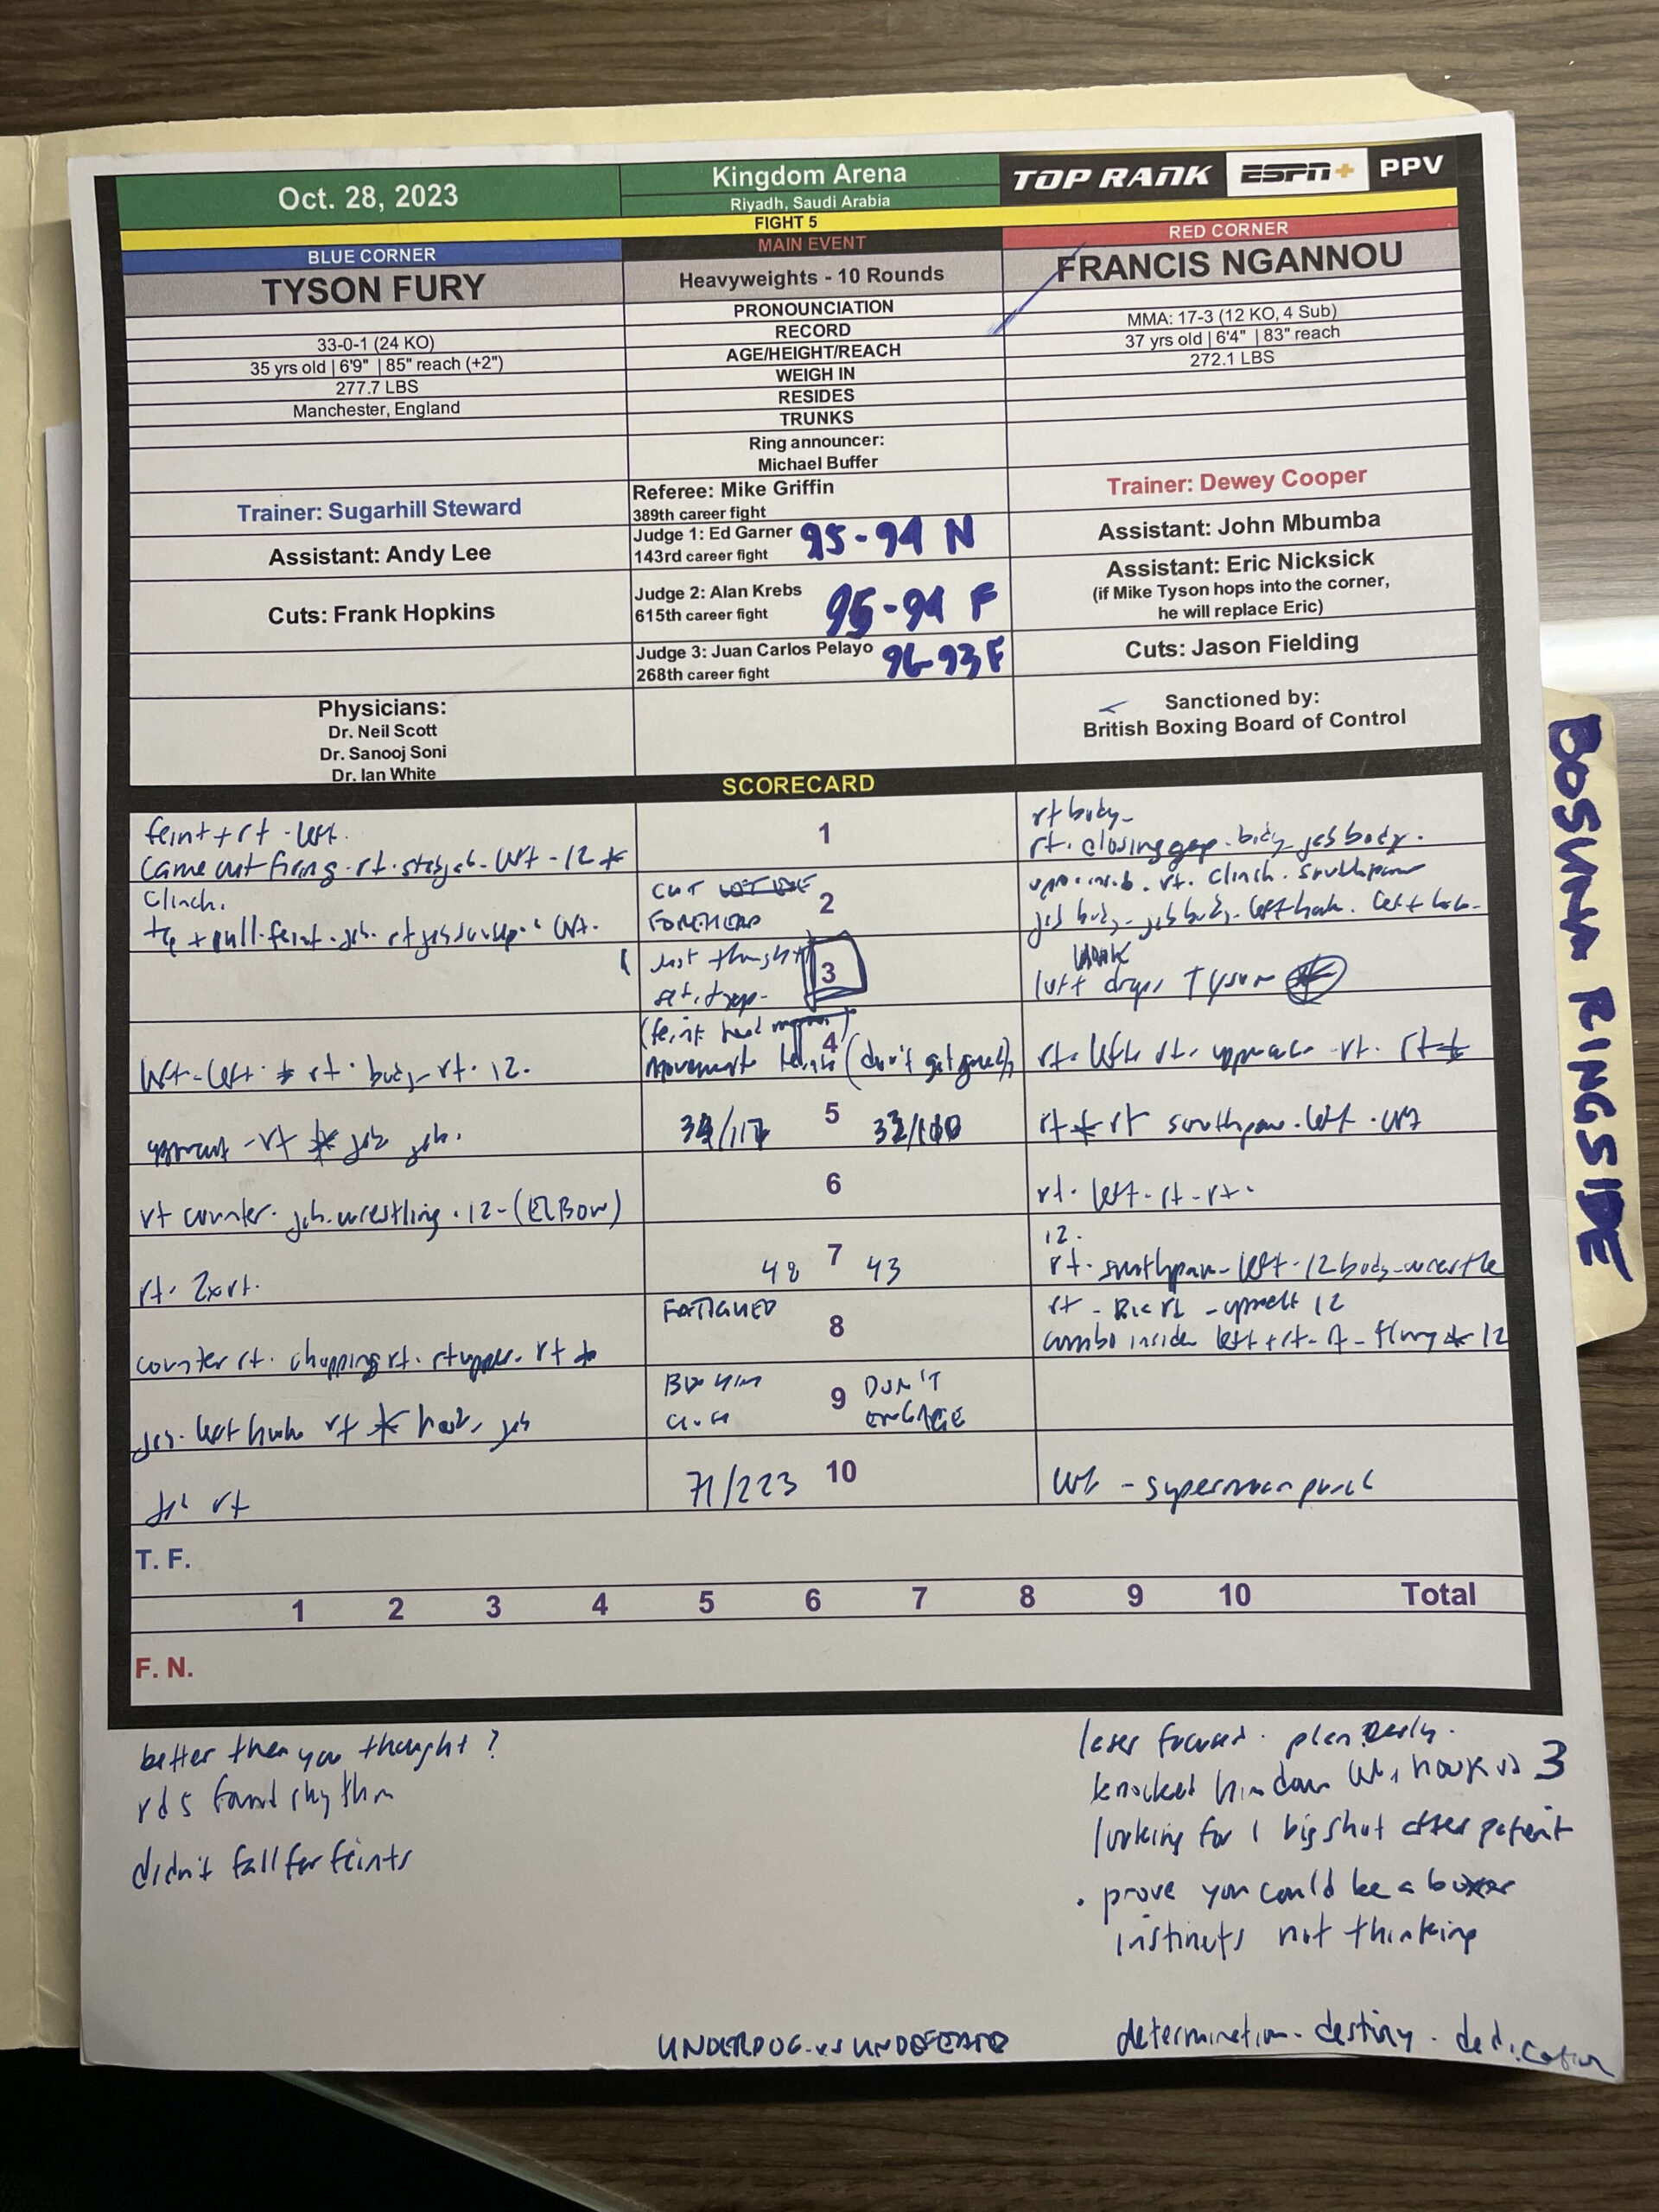 Oct. 28, 2023
Kingdom Arena
Riyadh, Saudi Arabia
TOP RANK ESPN+ PPV
FIGHT 5
BLUE CORNER
MAIN EVENT
RED CORNER
TYSON FURY
Heavyweights - 10 Rounds
FRANCIS NGANNOU
PRONOUNCIATION
33-0-1 (24 KO)
RECORD
MMA: 17-3 (12 KO, 4 Sub)
35 yrs old | 6'9" | 85" reach (+2")
AGE/HEIGHT/REACH
37 yrs old | 6'4" | 83" reach
277.7 LBS
WEIGH IN
272.1 LBS
Manchester, England
RESIDES
TRUNKS
Ring announcer:
Michael Buffer
Trainer: Sugarhill Steward
Referee: Mike Griffin
389th career fight
Trainer: Dewey Cooper
Assistant: Andy Lee
Judge 1: Ed Garner
143rd career fight
95-94 N
Assistant: John Mbumba
Cuts: Frank Hopkins
Judge 2: Alan Krebs
615th career fight
95-94 F
Assistant: Eric Nicksick
(if Mike Tyson hops into the corner,
he will replace Eric)
Judge 3: Juan Carlos Pelayo
268th career fight
96-93 F
Cuts: Jason Fielding
Physicians:
Dr. Neil Scott
Dr. Sanooj Soni
Dr. Ian White
Sanctioned by:
British Boxing Board of Control
SCORECARD
feint + rt - left.
came out firing - rt -
1
rt body-
rt. closing gap. body jab body.
clinch.
CUT
FOREHEAD
2
rt. clinch. southpaw
jab body - jab body - left hook.
3
hook
left drops Tyson
left - left * rt. body rt. 12.
movement
4
(don't get greedy)
rt *
- rt * jab jab.
5
rt * rt southpaw. left
rt counter. jab. wrestling. 12 - (ELBOW)
6
rt. left - rt - rt.
rt. 2x rt.
48 7 43
12.
rt. southpaw - left - 12 body - wrestle
counter rt. chopping rt. rt upper. rt *
FATIGUED
8
rt - Big rt - uppercut 12
combo inside left + rt - rt - flurry * 12
jab. left hook rt * hook, jab
9
DON'T
ENGAGE
rt
71/223
10
- superman punch
T. F.
1 2 3 4 5 6 7 8 9 10 Total
F. N.
better than you thought?
rd 5 found rhythm
didn't fall for feints
laser focused. plan early.
knocked him down hook rd 3
looking for 1 big shot after patient
. prove you could be a boxer
instincts not thinking
UNDERDOG vs UNDEFEATED
determination - destiny - dedication
BOSUNA RINGSIDE